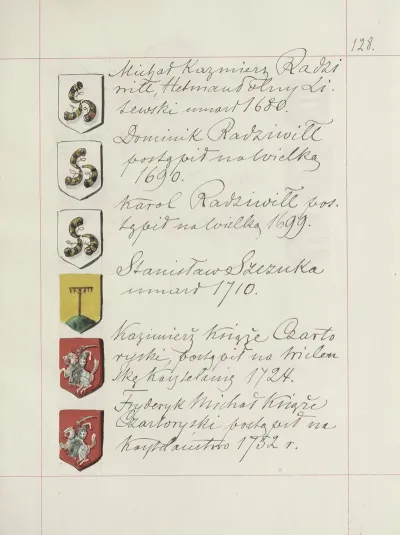 128.
Michał Kazimierz Radzi
wiłł, Hetman Polny Li-
tewski umarł 1680.
Dominik Radziwiłł
postąpił na Wielką
1690.
Karol Radziwiłł pos-
tąpił na Wielką 1699.
Stanisław Szczuka
umarł 1710.
Kazimierz Książe Czarto
ryski, postąpił na Wileń
ską Kasztelanię 1724.
Fryderyk Michał Książe
Czartoryski postąpił na
1752 r.